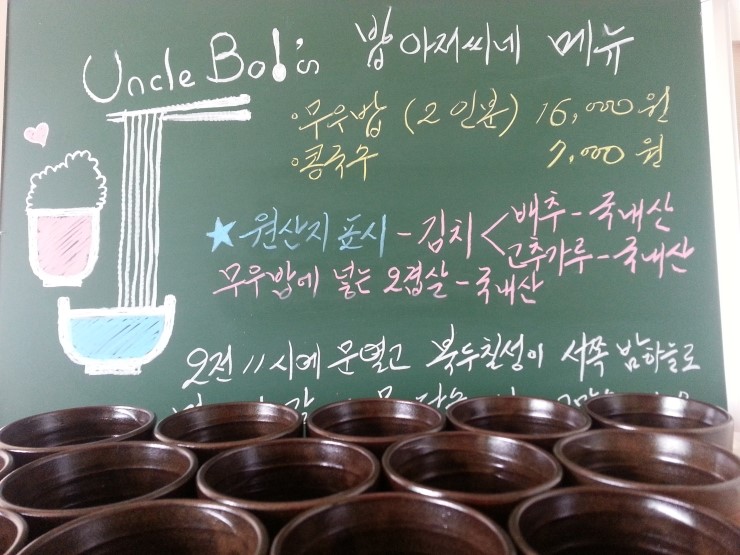 Uncle Bob's 밥아저씨네 메뉴
·무우밥 (2인분) 16,000원
·콩국수 7,000원
★원산지 표시 - 김치 < 배추 - 국내산
고추가루 - 국내산
무우밥에 넣는 오겹살 - 국내산
오전 11시에 문열고 북두칠성이 서쪽 밤하늘로